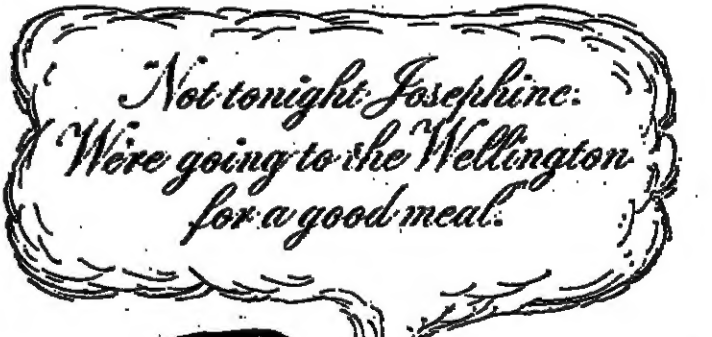 Not tonight Josephine.
We're going to the Wellington
for a good meal.